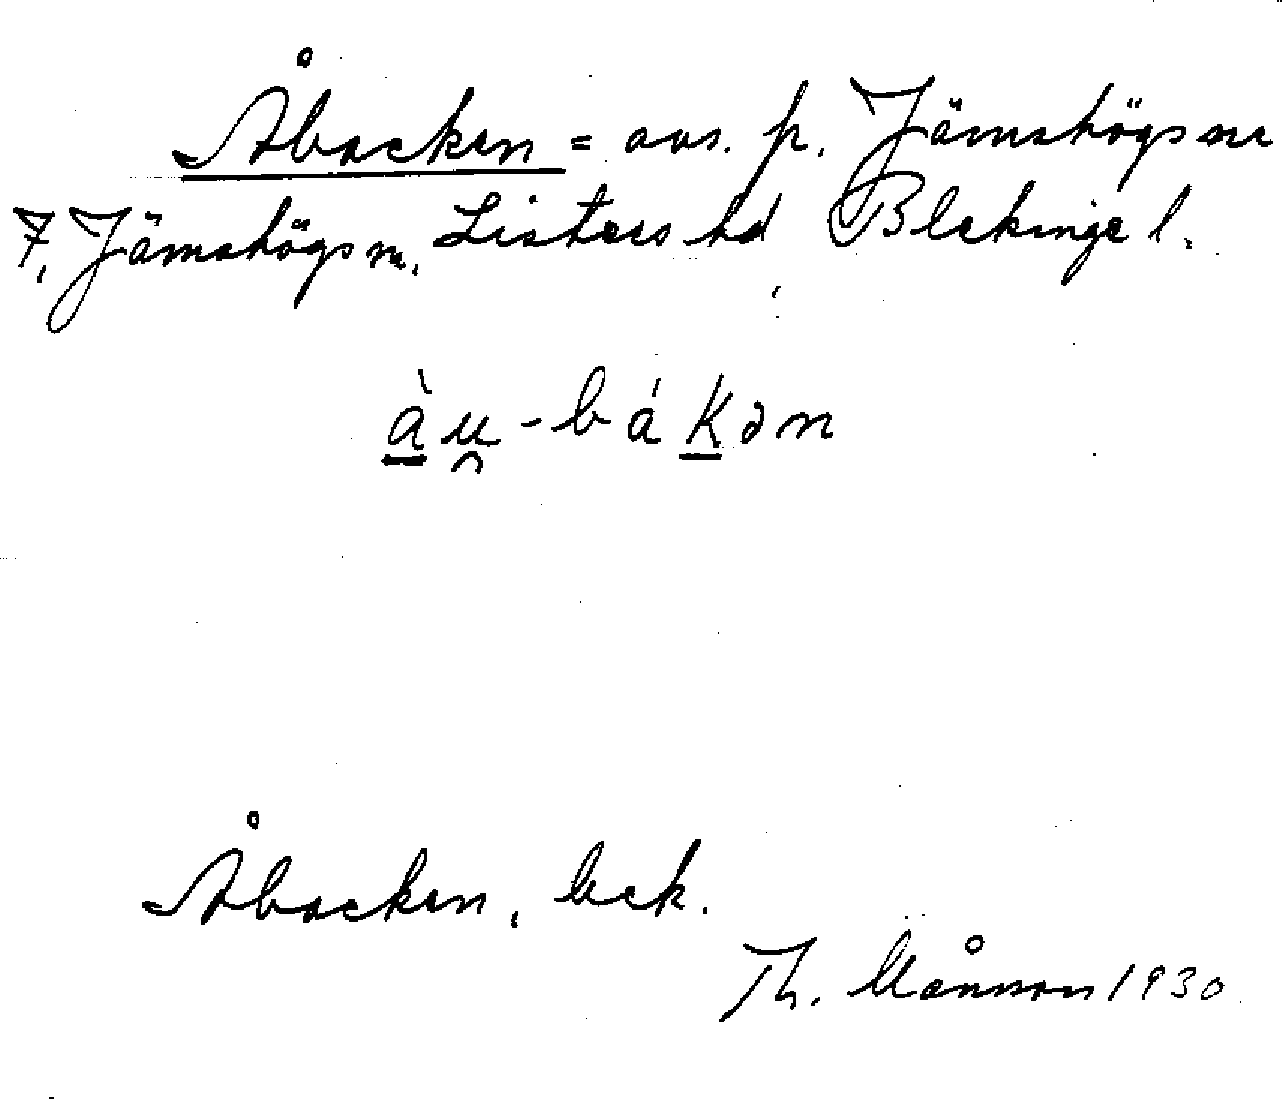 Åbacken = avs. p. Jämshögs nr
7, Jämshögs sn, Listers hd Blekinge l.
àu-bákən
Åbacken, bek.
Th. Månsson 1930